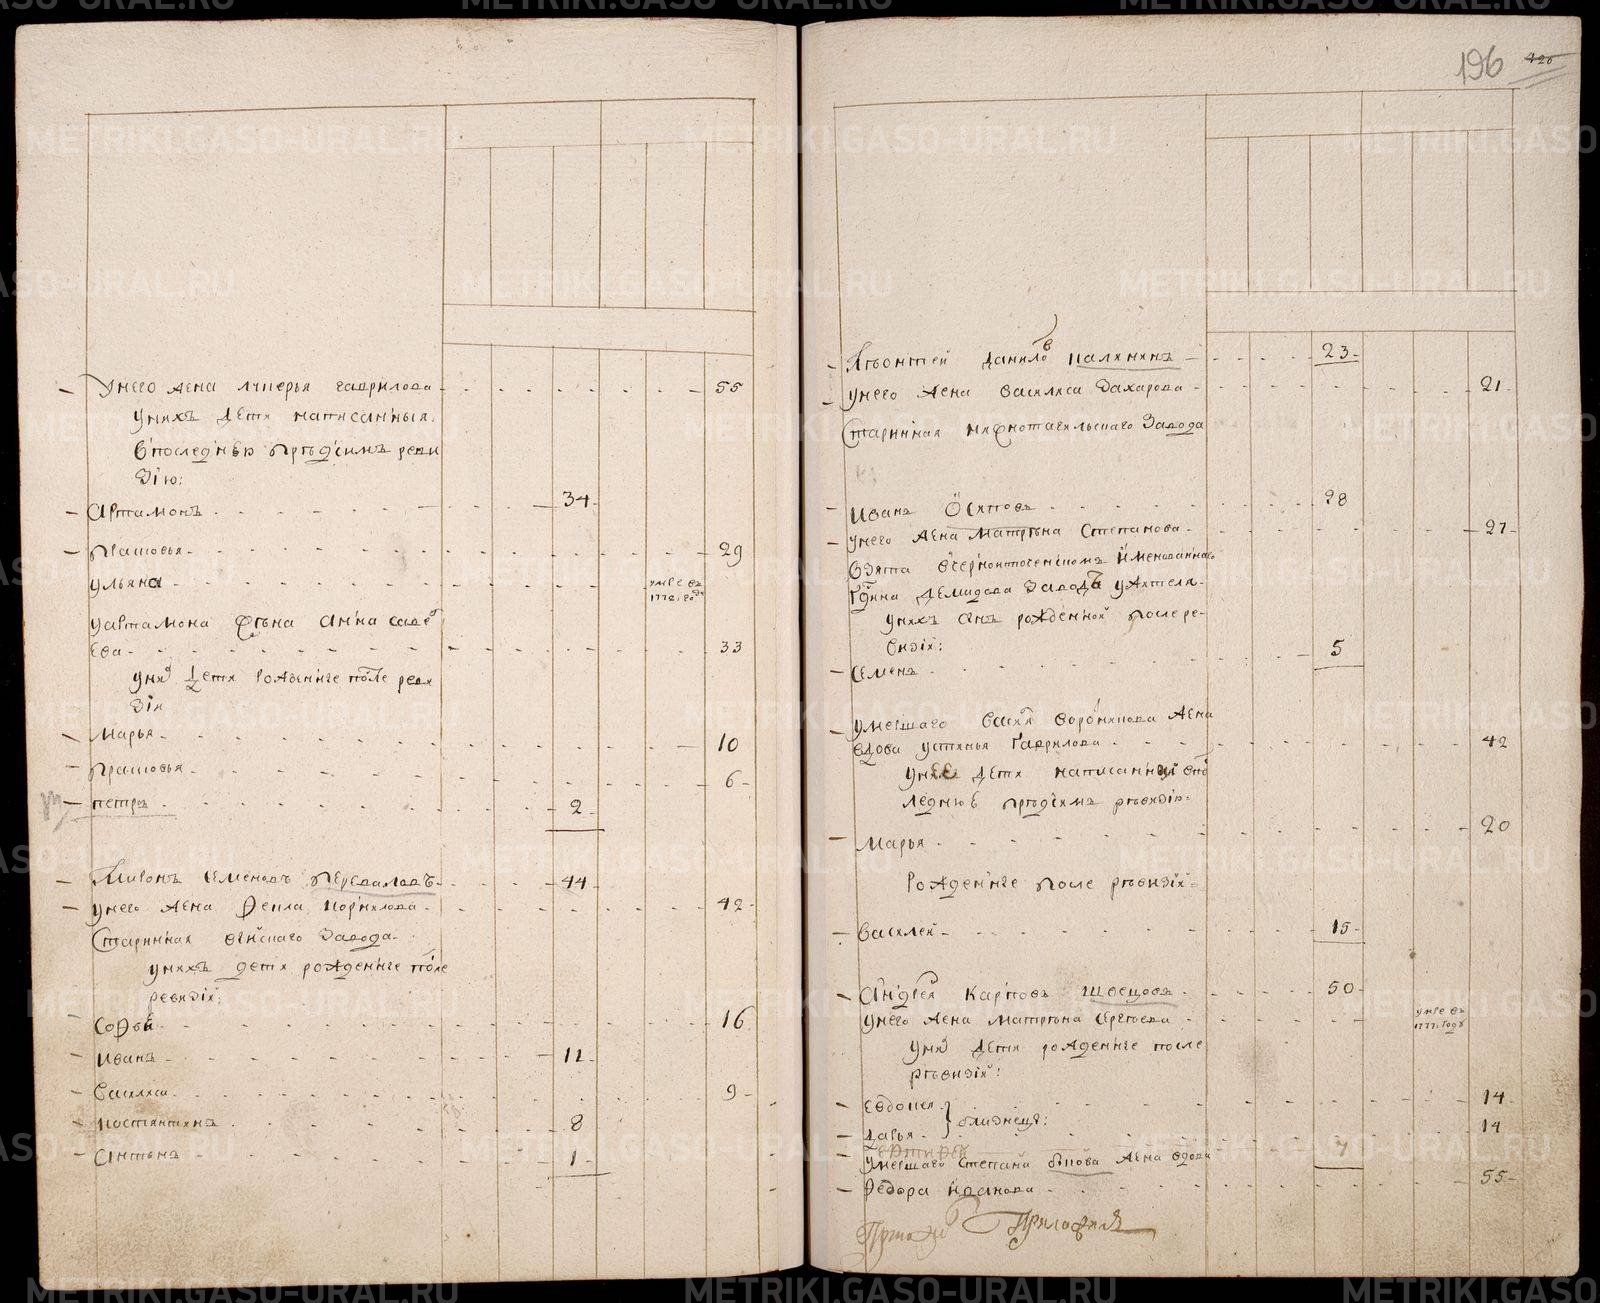 У него жена Лукерья Гаврилова 55
у них дети написанныя
в последнею пред сим реви
зию:
Артамон 34
Прасковья 29
Ульяна умре в 1772 году
У Артамона жена Анна Саве
ева 33
у них дети рожденные после реви
зии
Марья 10
Прасковья 6
Петр 2
Мирон Семенов Перевалов 44
У него жена Фекла Корнилова 42
Старинная завода
у них дети рожденные после
ревизии:
Софья 16
Иван 11
Василиса 9
Костянтин 8
Антон 1
196 426
Леонтей Данилов Калинин 23
У него жена Василиса Захарова 21
Старинная Нижнотагильского завода
Иван Осипов 28
У него жена Матрена Степанова 27
взята в Черноисточенском имянованнаго
Гдна Демидова заводе у жителя
у них сын рожденной после ре
визии:
Семен 5
Умершаго жена
вдова Устинья Гаврилова 42
у них дети написанныя в пос
леднею пред сим ревизию
Марья 20
Рожденные после ревизии
Василей 15
Андрей Карпов Швецов 50
У него жена Матрена Сергеева умре в 1777 году
у них дети рожденные после
ревизии:
Евдокея 14
близнецы:
Дарья 14
Умершаго Степана жена вдова
Федора Иванова 55
METRIKI.GASO-URAL.RU